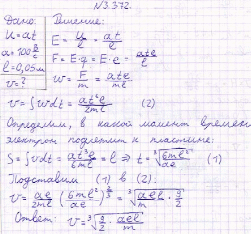 №3.372.
Дано: Решение:
U = at E = U/ℓ = at/ℓ
a = 100 В/с F = E·q = E·e = ate/ℓ
ℓ = 0,05 м w = F/m = ate/mℓ
v = ?
v = ∫wdt = at²e/2mℓ (2)
Определим, в какой момент времени
электрон подлетит к пластине:
S = ∫vdt = at³e/6mℓ = ℓ ⇒ t = ∛(6mℓ²/ae) (1)
Подставим (1) в (2):
v = ae/2mℓ (6mℓ²/ae)^(2/3) = ∛(aeℓ/m · 9/2)
Ответ: v = ∛(9/2 · aeℓ/m)